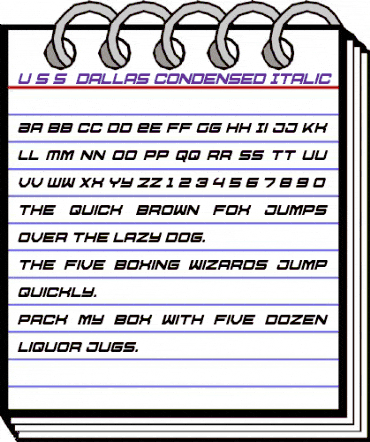 U S S DALLAS CONDENSED ITALIC
AA BB CC DD EE FF GG HH II JJ KK
LL MM NN OO PP QQ RR SS TT UU
VV WW XX YY ZZ 1 2 3 4 5 6 7 8 9 0
THE QUICK BROWN FOX JUMPS
OVER THE LAZY DOG.
THE FIVE BOXING WIZARDS JUMP
QUICKLY.
PACK MY BOX WITH FIVE DOZEN
LIQUOR JUGS.